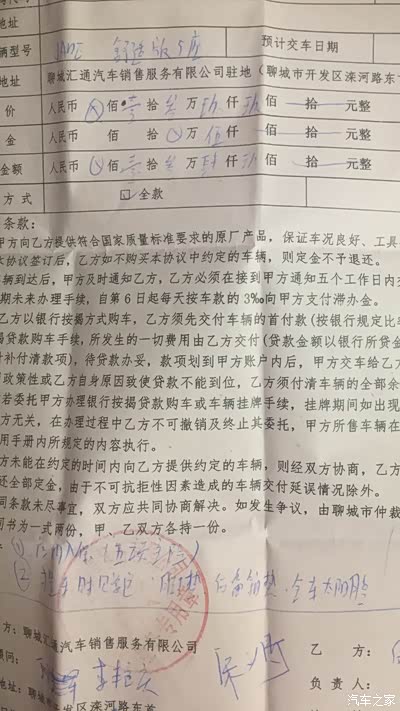 地址
辆型号 JADE 舒适版5座 预计交车日期
地址 聊城汇通汽车销售服务有限公司驻地(聊城市开发区滦河路东
价 人民币 佰 壹 拾 叁 万 玖 仟 玖 佰 一 拾 一 元整
金 人民币 佰 拾 万 伍 仟 佰 一 拾 一 元整
金额 人民币 佰 壹 拾 叁 万 仟 玖 佰 一 拾 一 元整
方式 ☑全款
条款:
甲方向乙方提供符合国家质量标准要求的原厂产品,保证车况良好、工具
本协议签订后,乙方如不购买本协议中约定的车辆,则定金不予退还。
车辆到达后,甲方及时通知乙方,乙方必须在接到甲方通知五个工作日内
期未办理手续,自第6日起每天按车款的3‰向甲方支付滞办金。
乙方以银行按揭方式购车,乙方须先交付车辆的首付款(按银行规定比
揭贷款购车手续,所发生的一切费用由乙方交付(贷款金额以银行所贷金
补付清款项),待贷款办妥,款项划到甲方账户内后,甲方交车给乙方
政策性或乙方自身原因致使贷款不能到位,乙方须付清车辆的全部余
若委托甲方办理银行按揭贷款购车或车辆挂牌手续,挂牌期间如出现
方无关,在办理过程中乙方不可撤销及终止其委托,甲方所售车辆在
用手册内所规定的内容执行。
方未能在约定的时间内向乙方提供约定的车辆,则经双方协商,乙方
还全部定金,由于不可抗拒性因素造成的车辆交付延误情况除外。
同条款未尽事宜,双方应共同协商解决。如发生争议,由聊城市仲裁
同书为一式两份,甲、乙双方各持一份。
①
② 后备箱垫 全车太阳膜
方:聊城汇通汽车销售服务有限公司 乙 方:
顾问: 负 责 人:
地址:聊城市开发区滦河路东首
汽车之家